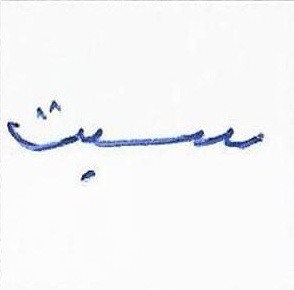 سبت